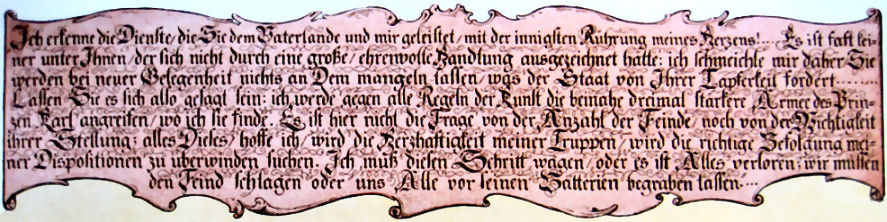 Ich erkenne die Dienste, die Sie dem Vaterlande und mir geleistet, mit der innigsten Rührung meines Herzens!... Es ist fast kei-
ner unter Ihnen, der sich nicht durch eine große, ehrenvolle Handlung ausgezeichnet hätte: ich schmeichle mir daher, Sie
werden bei neuer Gelegenheit nichts an Dem mangeln lassen, was der Staat von Ihrer Tapferkeit fordert........
Lassen Sie es sich also gesagt sein: ich werde gegen alle Regeln der Kunst die beinahe dreimal stärkere Armee des Prin-
zen Karl angreifen, wo ich sie finde. Es ist hier nicht die Frage von der Anzahl der Feinde, noch von der Wichtigkeit
ihrer Stellung; alles Dieses, hoffe ich, wird die Herzhaftigkeit meiner Truppen, wird die richtige Befolgung mei-
ner Dispositionen zu überwinden suchen. Ich muß diesen Schritt wagen, oder es ist Alles verloren; wir müssen
den Feind schlagen oder uns Alle vor seinen Batterien begraben lassen...